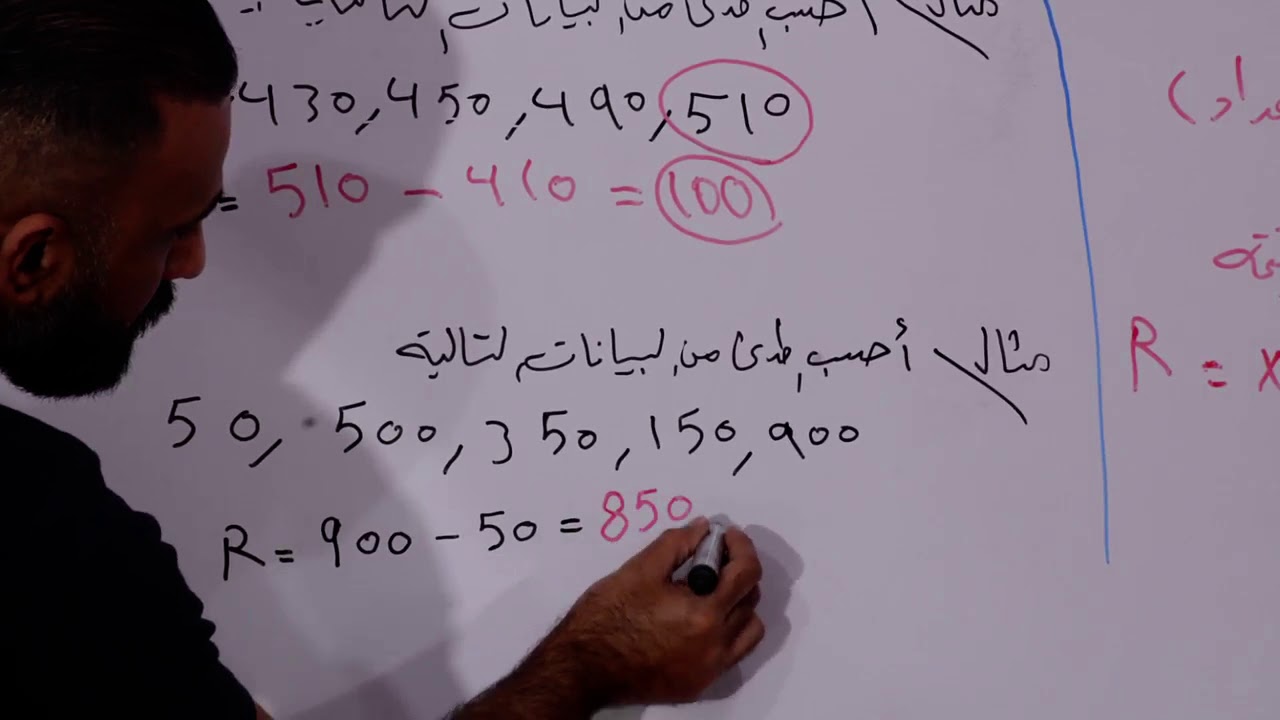 مثال / أحسب المدى من البيانات التالية
430, 450, 490, 510
= 510 - 410 = 100
مثال / أحسب المدى من البيانات التالية
50, 500, 350, 150, 900
R = 900 - 50 = 850
R = x